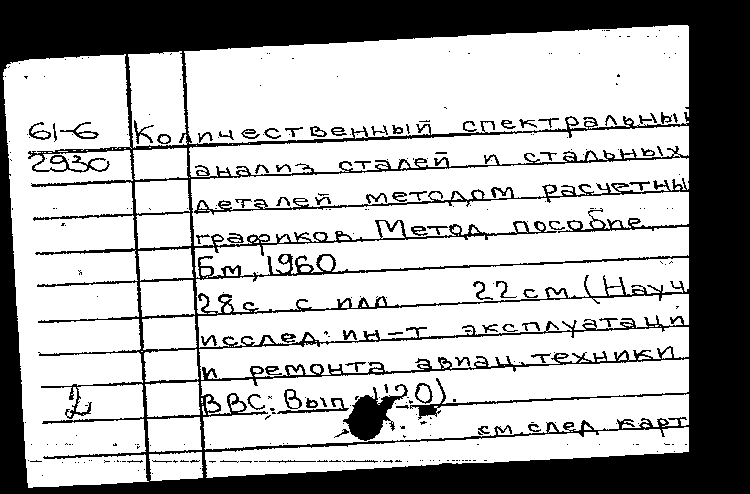 61-6 Количественный спектральный
2930 анализ сталей и стальных
деталей методом расчетны
графиков. Метод. пособие.
Бм, 1960.
28 с. с илл. 22 см. (Науч.
исслед. ин-т эксплуатаци
и ремонта авиац. техники
2 ВВС. Вып. 1120).
см. след. карт